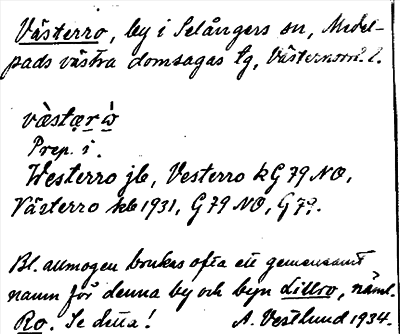 Västerro, by i Selångers sn, Medel-
pads västra domsagas tg, Västernorrl. l.
västær ὼ
Prep. i.
Westerro jb, Vesterro kG 79 NO,
Västerro kb 1931, G 79 NO, G 79.
Bl. allmogen brukas ofta ett gemensamt
namn för denna by och byn Lillro, näml.
Ro. Se detta! A. Vestlund 1934.